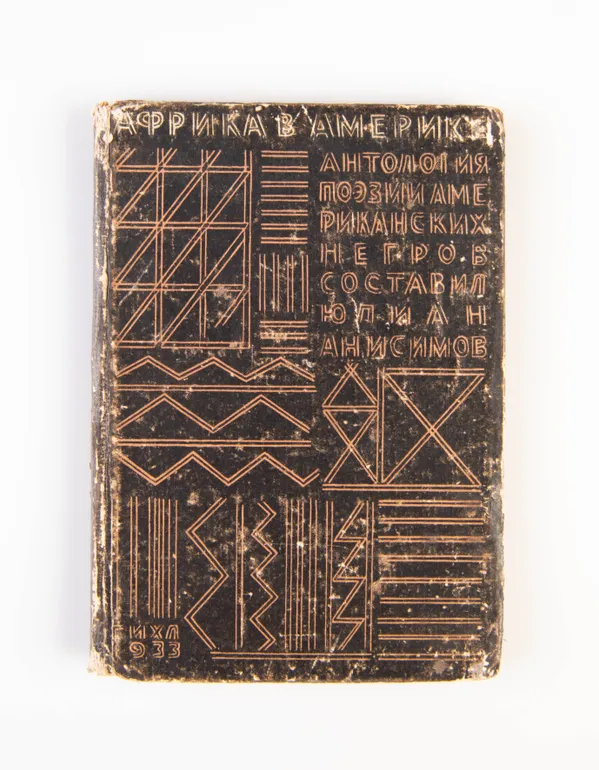 АФРИКА В АМЕРИКЕ
АНТОЛОГИЯ
ПОЭЗИИ АМЕ
РИКАНСКИХ
НЕГРОВ
СОСТАВИЛ
ЮЛИАН
АНИСИМОВ
ГИХЛ
933